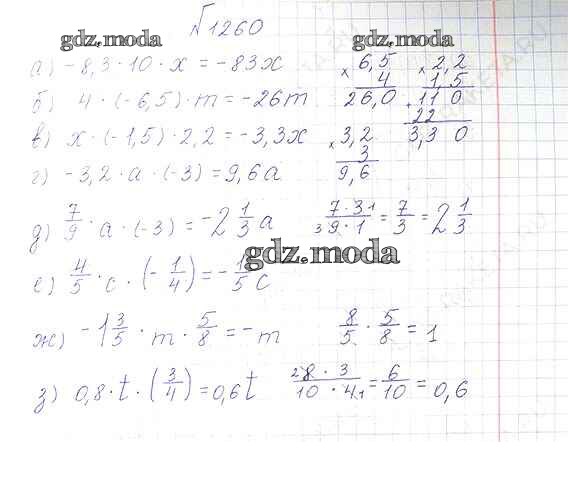 √1260
gdz.moda gdz.moda
а) -8,3·10·x = -83x
б) 4·(-6,5)·m = -26m
в) x·(-1,5)·2,2 = -3,3x
г) -3,2·a·(-3) = 9,6a
× 6,5
4
26,0
× 2,2
1 5
+ 11 0
22
3,3 0
× 3,2
3
9,6
д) 7/9·a·(-3) = -2 1/3 a 7·3 1/3 9·1 = 7/3 = 2 1/3
gdz.moda
е) 4/5·c·(-1/4) = -1/5 c
ж) -1 3/5·m·5/8 = -m 8/5·5/8 = 1
з) 0,8·t·(3/4) = 0,6t 2 8·3/10·4 1 = 6/10 = 0,6